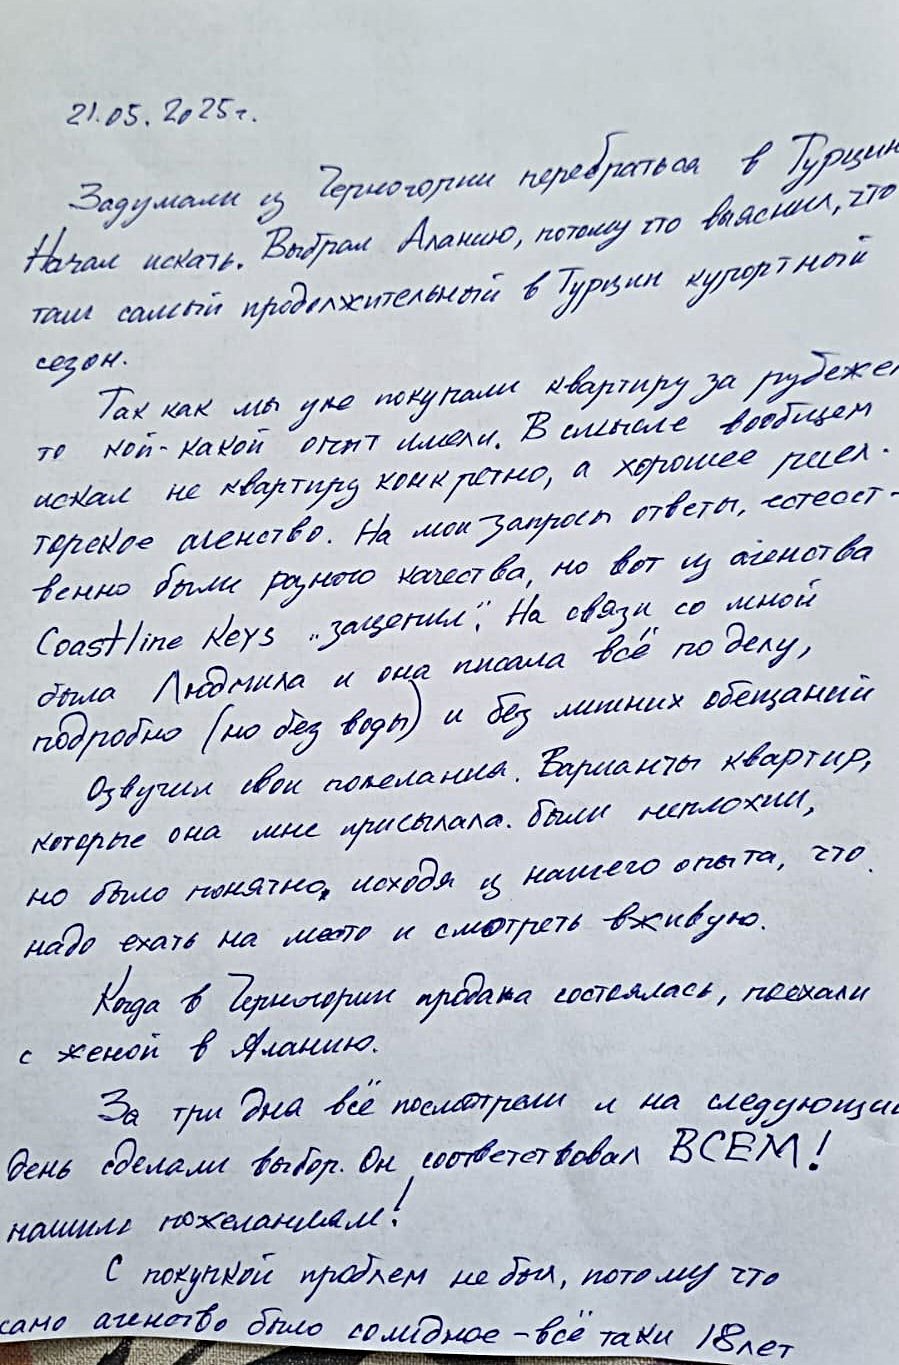 21.05.2025г.
Задумали из Черногории перебраться в Турцию
Начал искать. Выбрал Аланию, потому что выяснил, что
там самый продолжительный в Турции курортный
сезон.
Так как мы уже покупали квартиру за рубежом
то кой-какой опыт имели. В смысле вообщем
искал не квартиру конкретно, а хорошее риел-
торское агенство. На мои запросы ответы, естест-
венно были разного качества, но вот из агенства
Coastline Keys „зацепил". На связи со мной
была Людмила и она писала всё по делу,
подробно (но без воды) и без лишних обещаний
Озвучил свои пожелания. Варианты квартир,
которые она мне присылала. были неплохии,
но было понятно, исходя из нашего опыта, что
надо ехать на место и смотреть вживую.
Когда в Черногории продажа состоялась, поехали
с женой в Аланию.
За три дня всё посмотрели и на следующий
день сделали выбор. Он соответствовал ВСЕМ!
нашим пожеланиям!
С покупкой проблем не был, потому что
само агенство было солидное – всё таки 18 лет